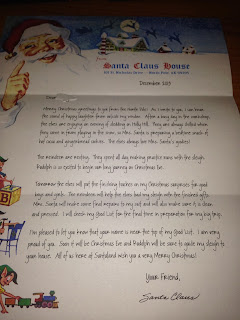 From
Santa Claus House
101 St. Nicholas Drive ~ North Pole, AK 99705
December 2013
Dear
Merry Christmas greetings to you from the North Pole! As I write to you, I can hear
the sound of happy laughter from outside my window. After a busy day in the workshop,
the elves are enjoying an evening of sledding on Holly Hill. They are always chilled when
they come in from playing in the snow, so Mrs. Santa is preparing a bedtime snack of
hot cocoa and gingerbread cookies. The elves always love Mrs. Santa's goodies!
The reindeer are resting. They spend all day making practice runs with the sleigh.
Rudolph is so excited to begin our long journey on Christmas Eve.
Tomorrow the elves will put the finishing touches on my Christmas surprises for good
boys and girls. The reindeer will help the elves load my sleigh with the finished gifts.
Mrs. Santa will make some final repairs to my suit and will also make sure it is clean
and pressed. I will check my Good List for the final time in preparation for my big trip.
I'm pleased to let you know that your name is near the top of my Good List. I am very
proud of you. Soon it will be Christmas Eve and Rudolph will be sure to guide my sleigh to
your house. All of us here at Santaland wish you a very Merry Christmas!
Your Friend,
Santa Claus
B